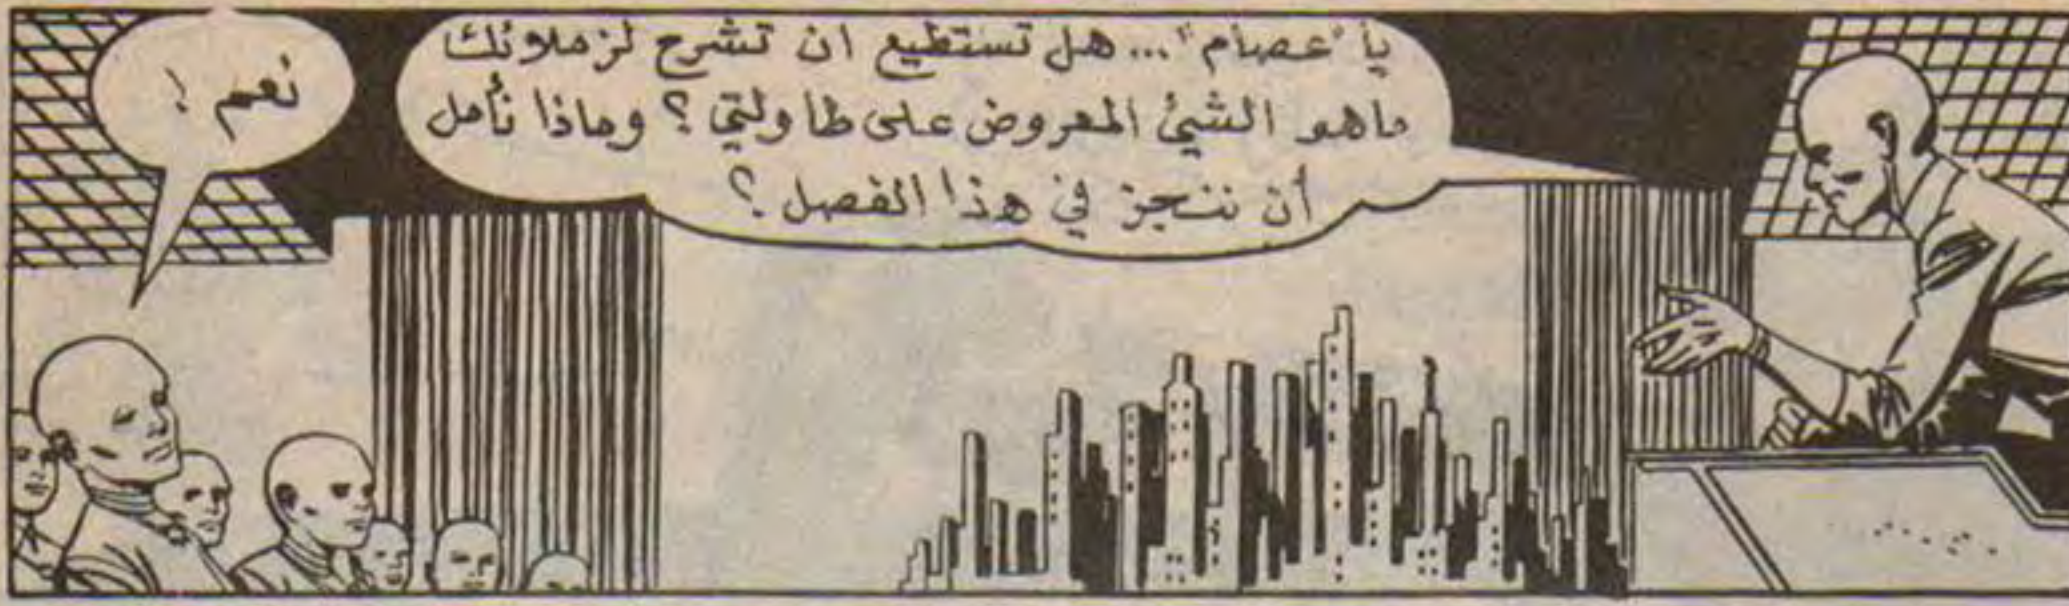 يا "عصام"... هل تستطيع ان تشرح لزملائك
ماهو الشيئ المعروض على طاولتي؟ وماذا نأمل
أن ننجز في هذا الفصل؟
نعم!